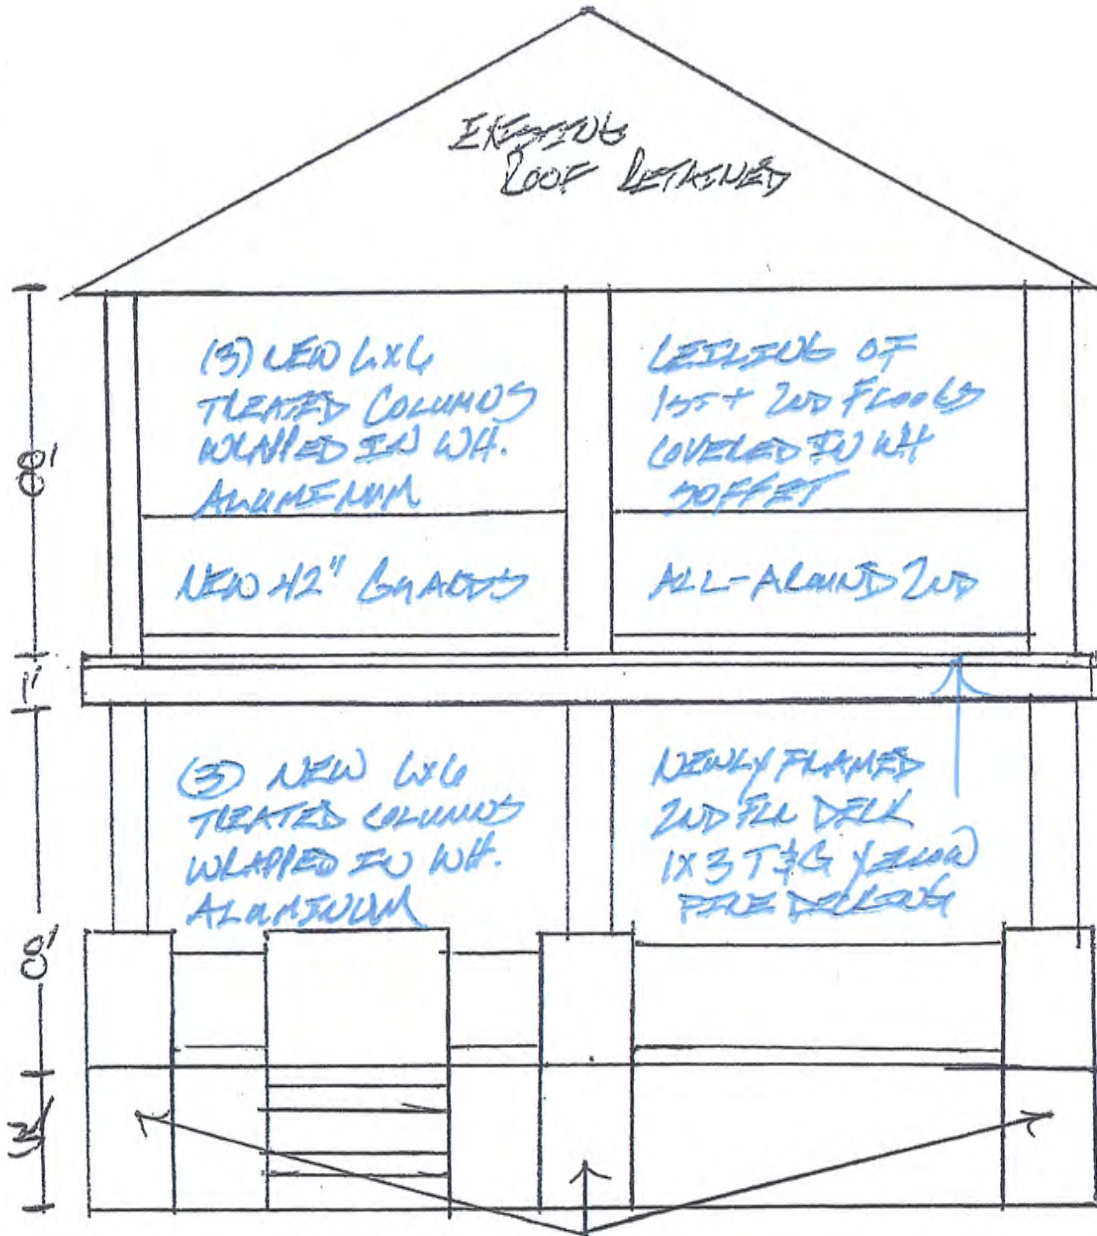 EXISTING
ROOF RETAINED
(3) NEW 6x6
TREATED COLUMNS
WRAPPED IN WH.
ALUMINUM
CEILING OF
1ST + 2ND FLOORS
COVERED IN WH
SOFFET
NEW 42" GUARDS
ALL-AROUND 2ND
8'
1'
(3) NEW 6x6
TREATED COLUMNS
WRAPPED IN WH.
ALUMINUM
NEWLY FRAMED
2ND FLR DECK
1X3 T&G YELLOW
PINE DECKING
8'